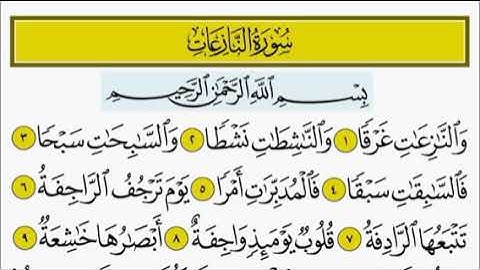 سُورَةُ النَّازِعَاتِ
بِسْمِ اللَّهِ الرَّحْمَٰنِ الرَّحِيمِ
وَالنَّازِعَاتِ غَرْقًا ١ وَالنَّاشِطَاتِ نَشْطًا ٢ وَالسَّابِحَاتِ سَبْحًا ٣
فَالسَّابِقَاتِ سَبْقًا ٤ فَالْمُدَبِّرَاتِ أَمْرًا ٥ يَوْمَ تَرْجُفُ الرَّاجِفَةُ ٦
تَتْبَعُهَا الرَّادِفَةُ ٧ قُلُوبٌ يَوْمَئِذٍ وَاجِفَةٌ ٨ أَبْصَارُهَا خَاشِعَةٌ ٩